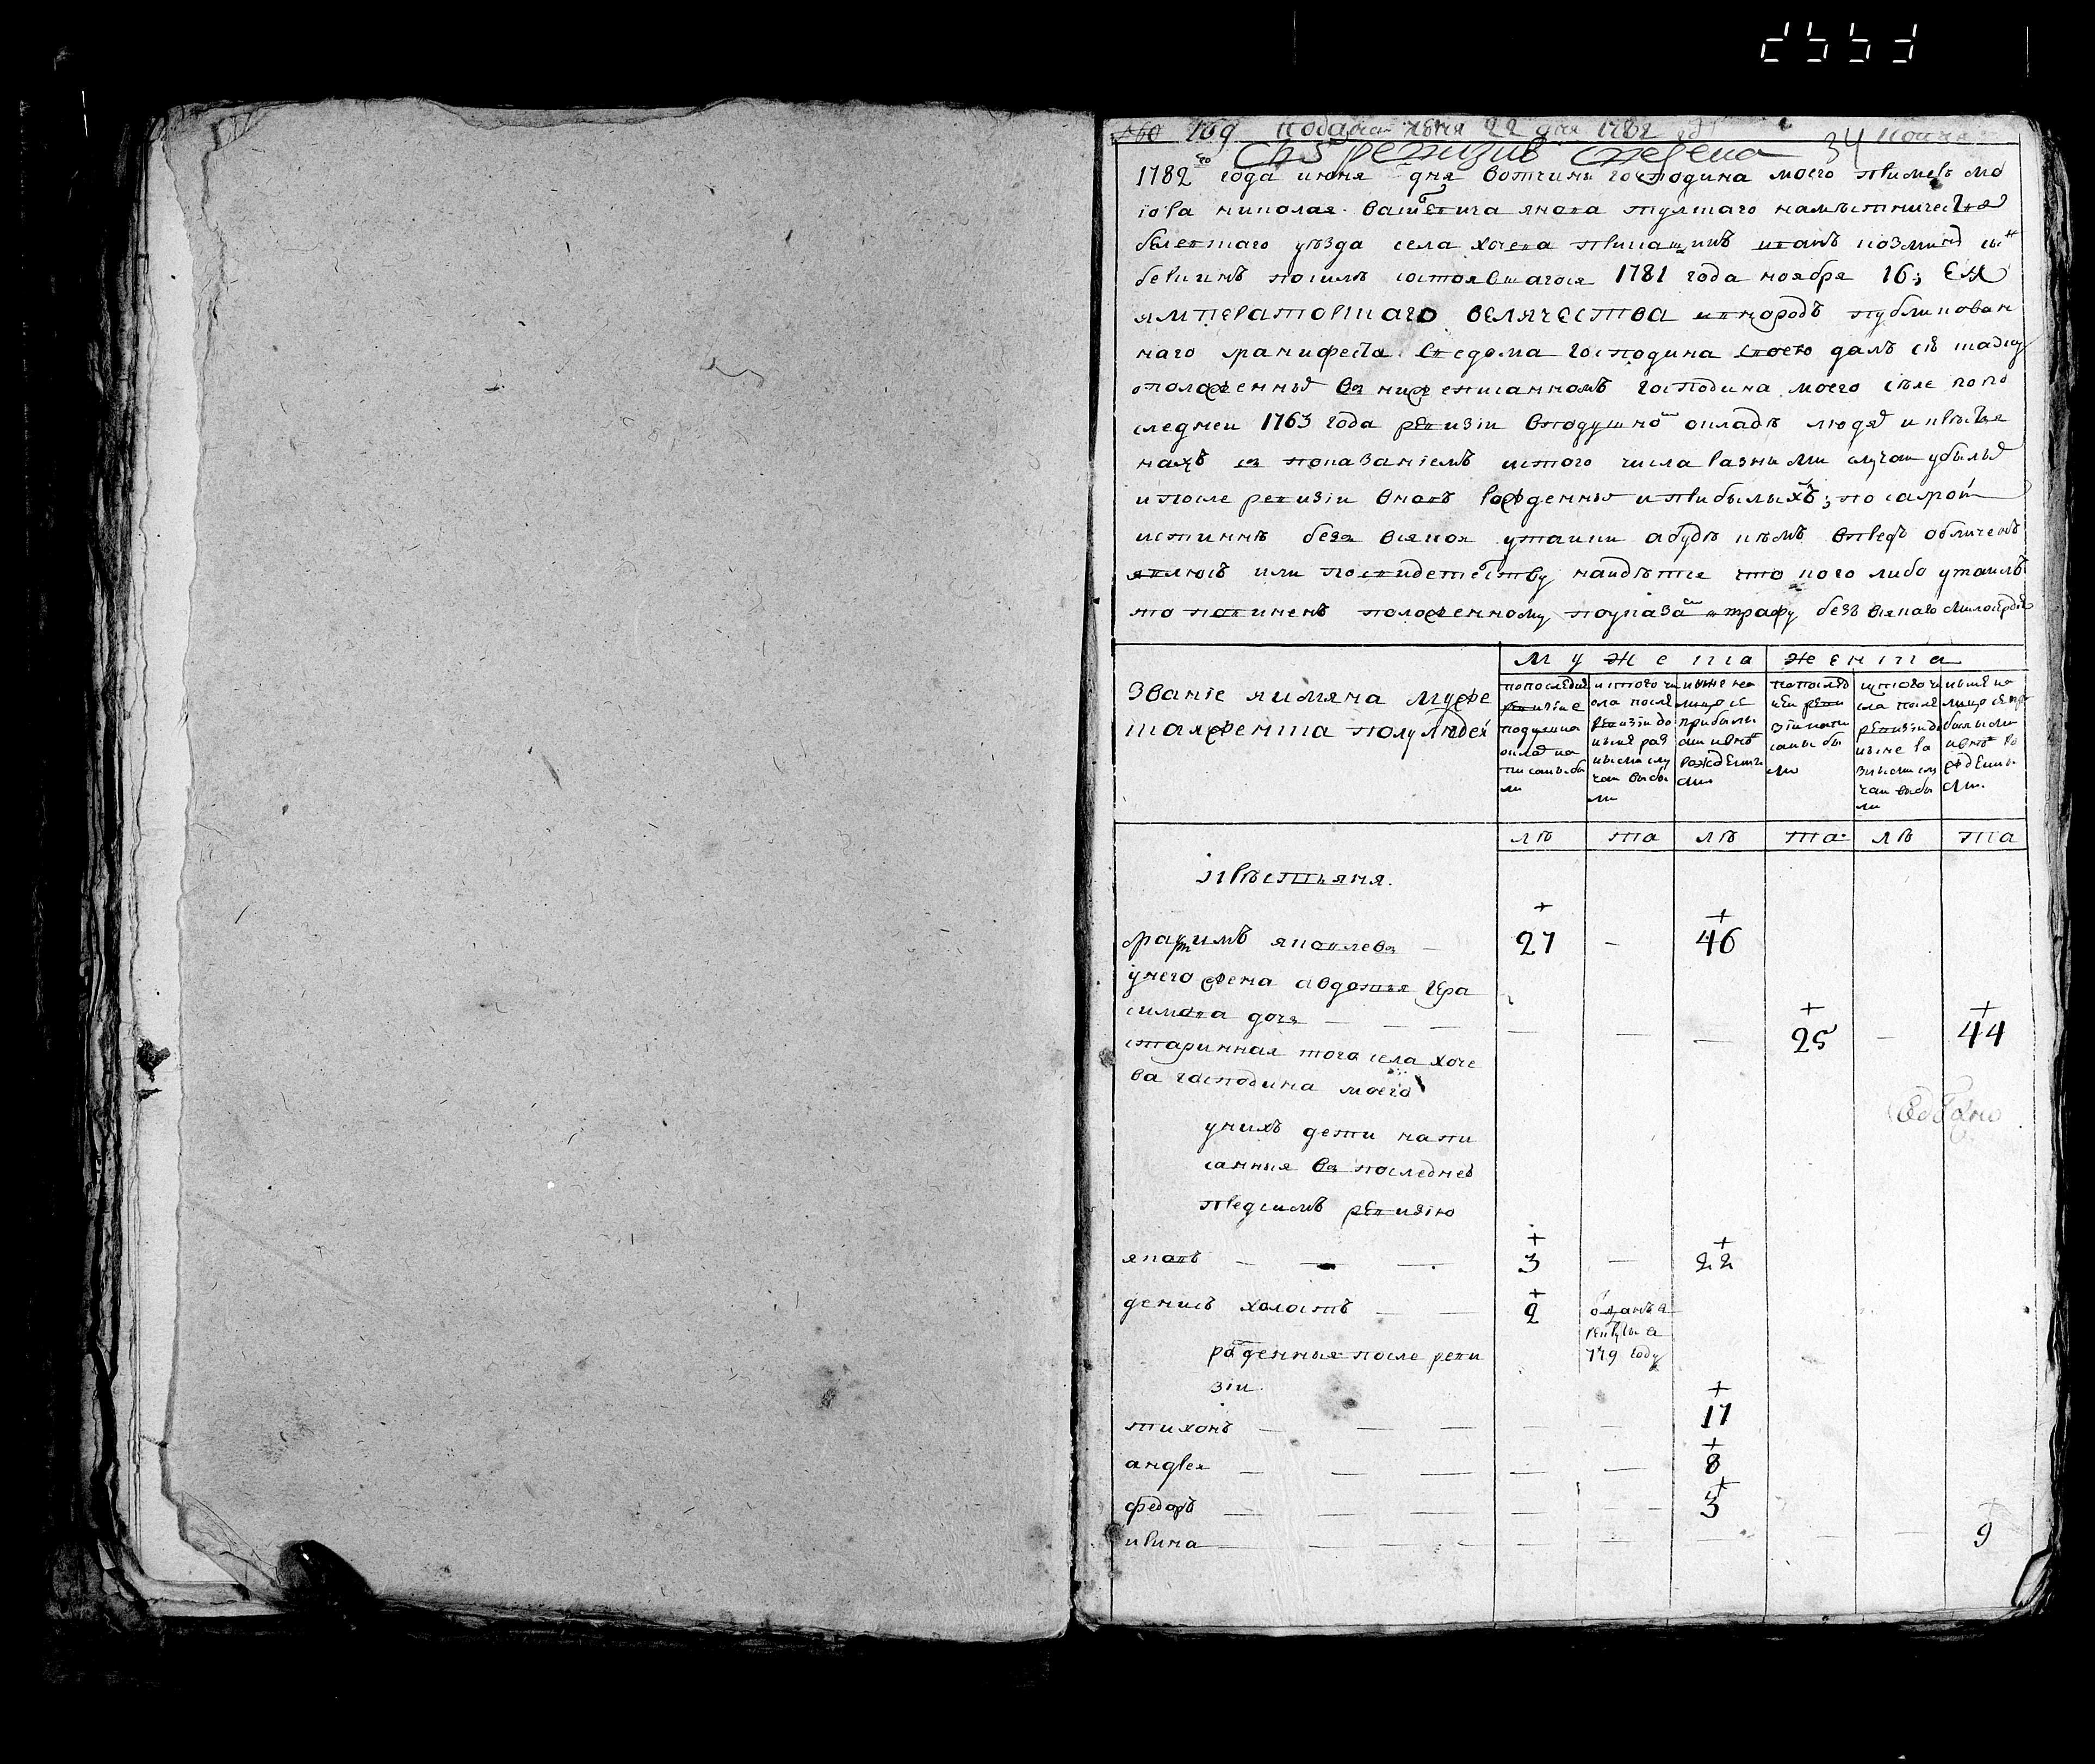 169 подана июня 22 дня 1782
съ ревизию сверена 34
1782 го года июня дня вотчины господина моего примеръ мо
иора николая яковa тулскаго наместничества
белевскаго уезда села хочева прикащикъ иванъ козминъ сынъ
посиле состоявшагося 1781 года ноября 16; Ея
императорскаго величества внародъ публикован
наго манифеста сведома господина своего далъ сiю скаску
оположенныхъ въ нижеписанномъ господина моего селе попо
следней 1763 года ревизiи вподушной окладъ людяхъ и крестья
нахъ съ показанiемъ изтого числа разными случаи убылыхъ
и после ревизiи вновь рожденныхъ и прибылыхъ; по самой
истинне безъ всякой утаики а буде кемъ впредь обличенъ
явлюсь или посвидетелству наидется что кого либо утаилъ
то повиненъ положенному поуказамъ штрафу безъ всякаго милосердия
мужеска женска
званiе и имяна муже
ска и женска полу людей
попоследней
ревизiи в
подушной
окладъ на
писаны бы
ли
изтого чи
сла после
ревизiи до
ныне раз
ными слу
чаи выбы
ли
ныне на
лицо съ
прибылы
ми и вновь
рожденны
ми
попослед
ней реви
зiи напи
саны бы
ли
изтого чи
сла после
ревизiи до
ныне ра
зными слу
чаи выбы
ли
ныне на
лицо съ при
былыми
и вновь ро
жденны
ми
ле та ле та ле та
крестьяня.
максимъ яковлевъ — 27 — 46
унего жена авдотья гера
симова дочь — — — — — — 25 — 44
старинная того села хоче
ва господина моего
унихъ дети напи
санныя въ последней
предсимъ ревизiю
яковъ — — — 3 — 22
денисъ холостъ — — 2 отданъ в
рекруты в
779 году
рожденныя после реви
зiи
тихонъ — — — — — 17
андрей — — — — — 8
федоръ — — — — — 3
ирина — — — — — — — — 9